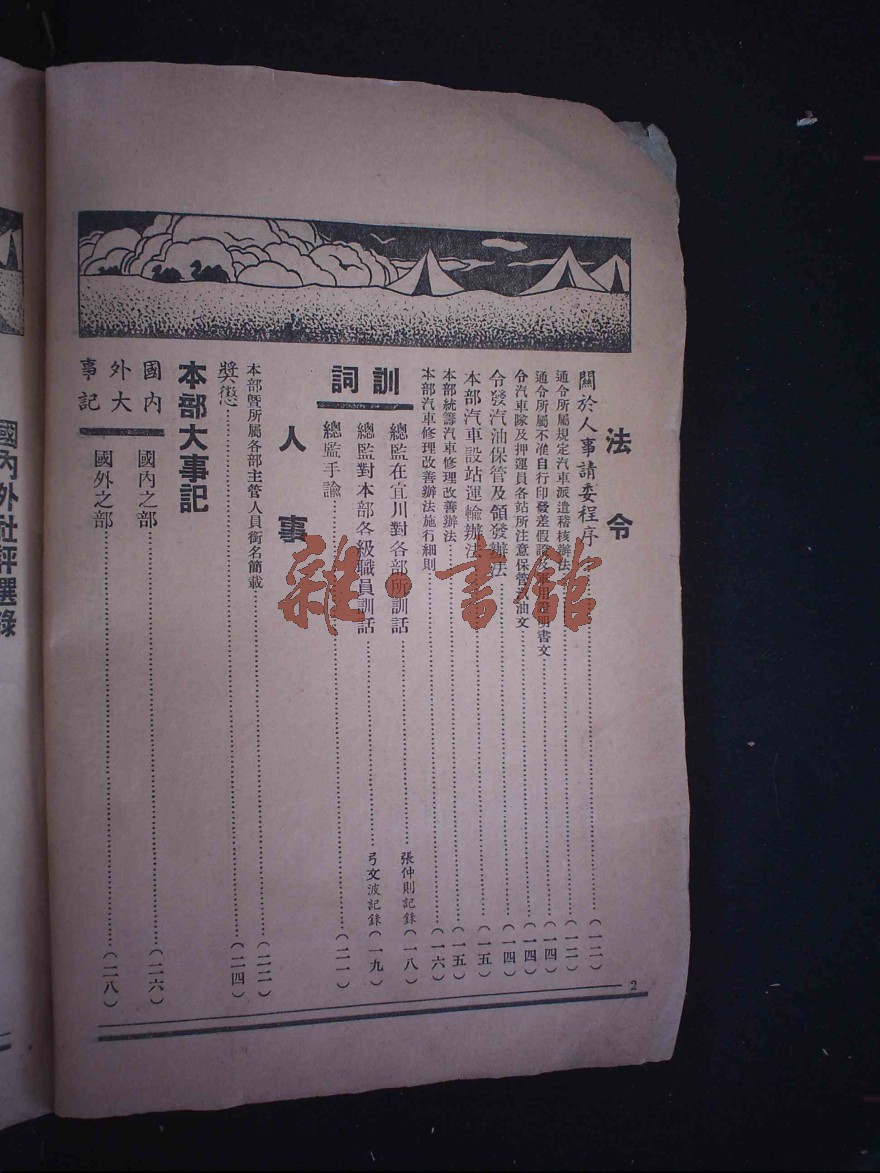 法令
關於人事請委程序……(一二)
通令所屬規定汽車派遣稽核辦法……(一二)
通令所屬不准自行印發差假證及軍用證明書文……(一四)
令汽車隊及押運員各站所注意保管汽油文……(一四)
令發汽油保管及領發辦法……(一四)
本部汽車設站運輸辦法……(一五)
本部統籌汽車修理改善辦法……(一五)
本部汽車修理改善辦法施行細則……(一六)
訓詞
總監在宜川對各部所訓話……張仲則記錄(一八)
總監對本部各級職員訓話……弓文波記錄(一九)
總監手諭……(二一)
人事
本部暨所屬各部主管人員銜名簡載……(二二)
獎懲……(二四)
本部大事記
國內外大事記
國內之部……(二六)
國外之部……(二八)
2
國內外社評選錄
雜·書館